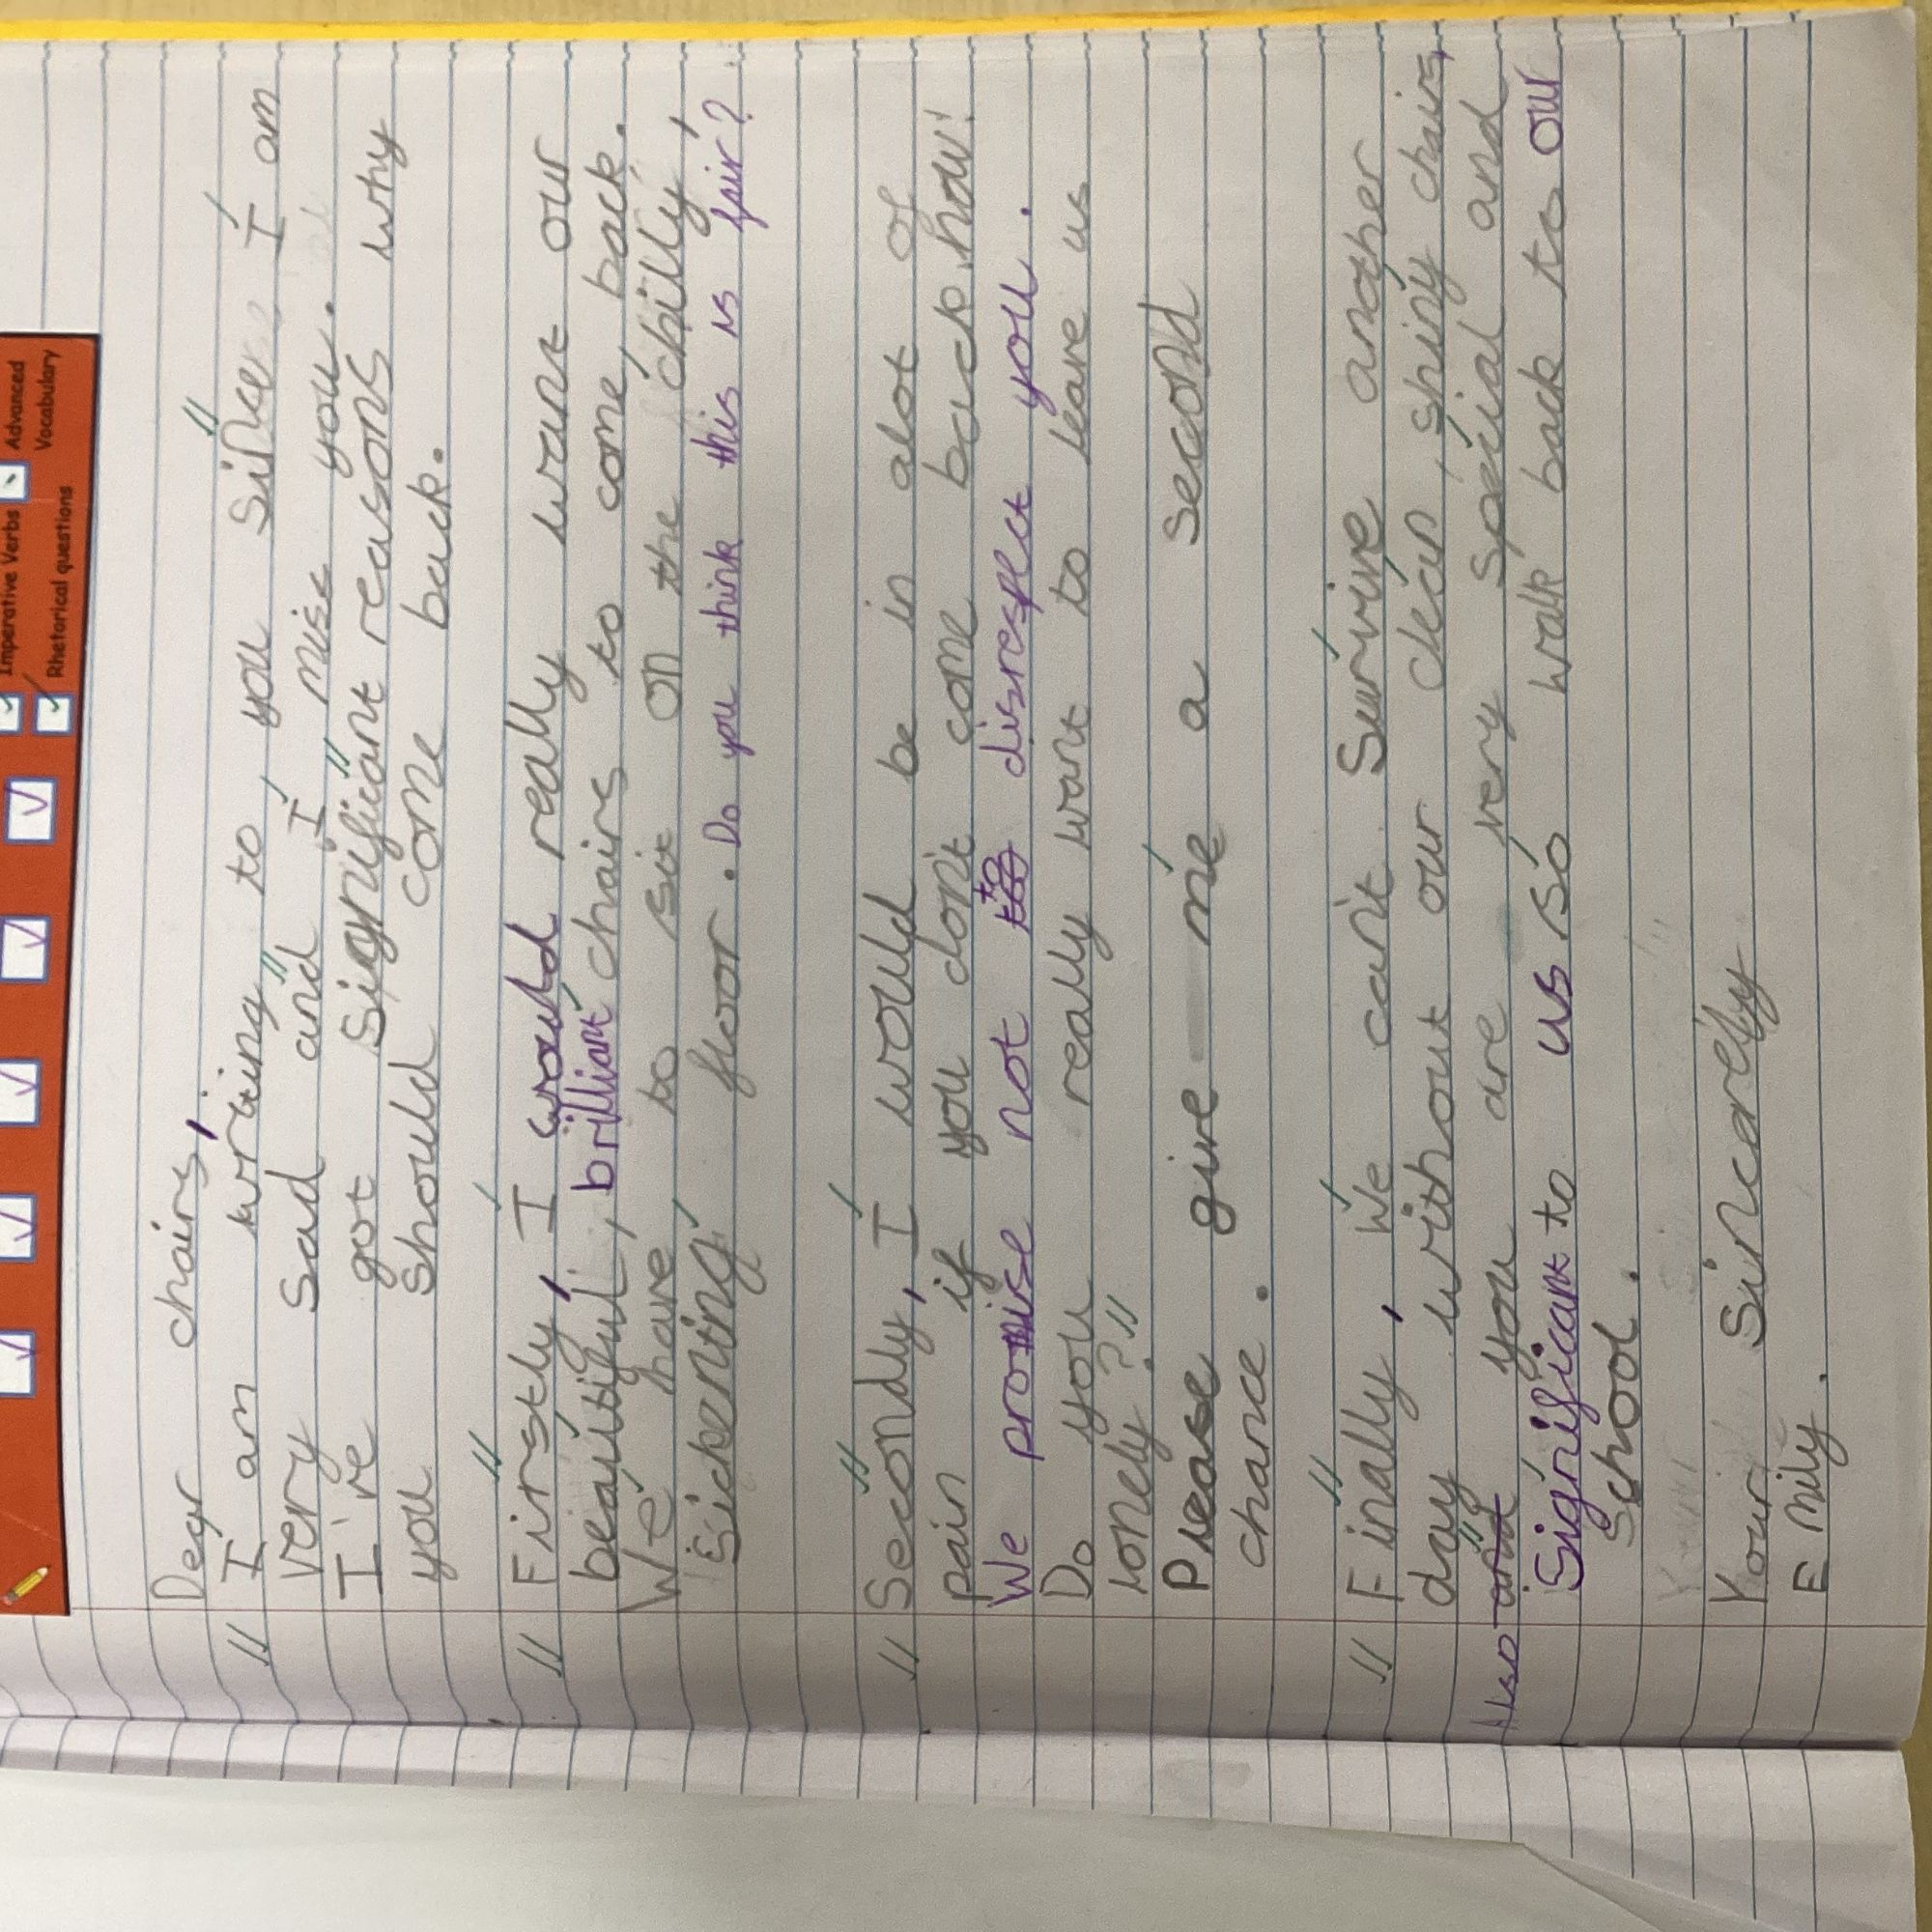 Imperative Verbs
Advanced Vocabulary
Rhetorical questions
Dear chairs,
I am writing to you sinces I am
very sad and I miss you.
I've got significant reasons why
you should come back.
Firstly, I would really want our
beautiful, brilliant chairs to come back.
We have to sit on the chilly,
sickenting floor. Do you think this is fair?
Secondly, I would be in alot of
pain if you don't come back now!
We promise not to disrespect you.
Do you really want to leave us
lonely?
Please give me a second
chance.
Finally, we can't survive another
day without our clean, shiny chairs,
Also and you are very special and
significant to us so walk back to our
school.
Your Sincerely
Emily.